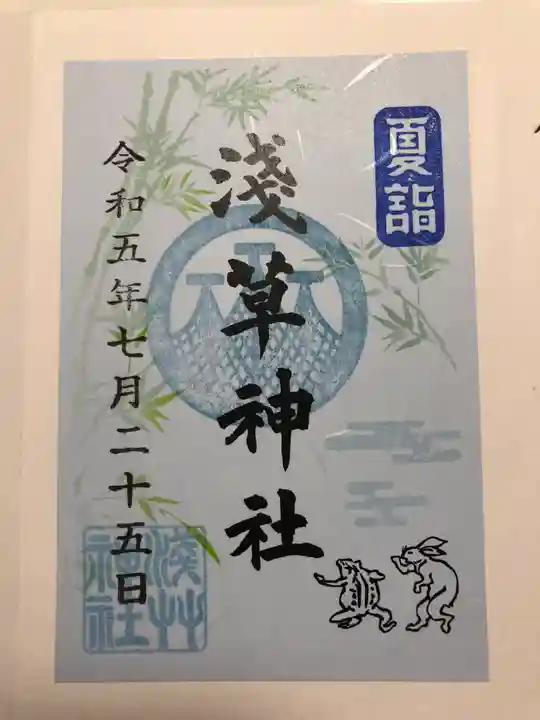 夏詣
淺草神社
令和五年七月二十五日
淺草
神社